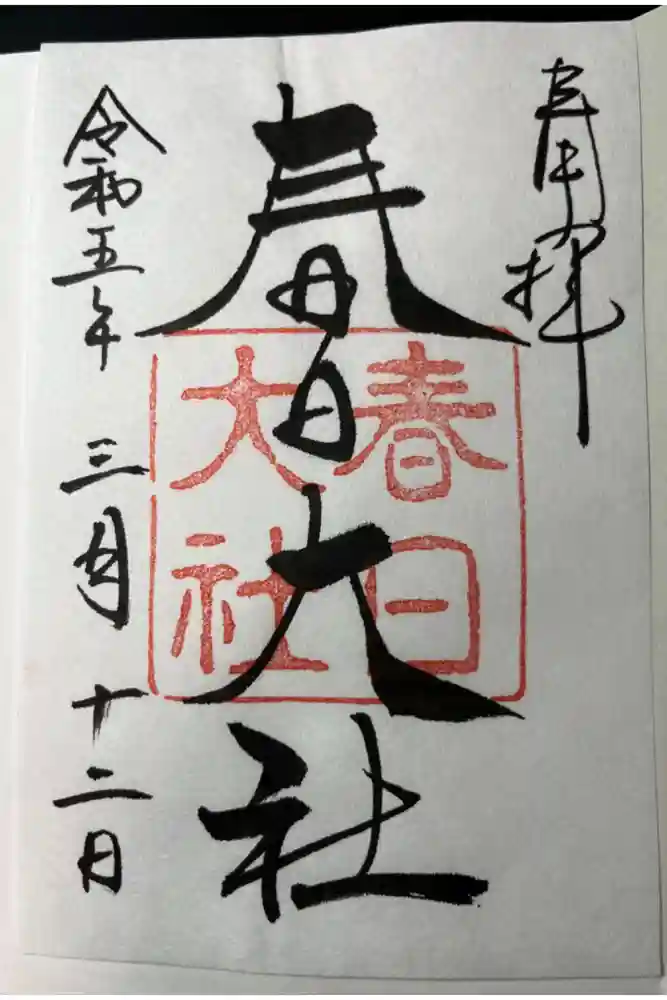 奉拝
春日大社
春日
大社
令和五年 三月 十二日